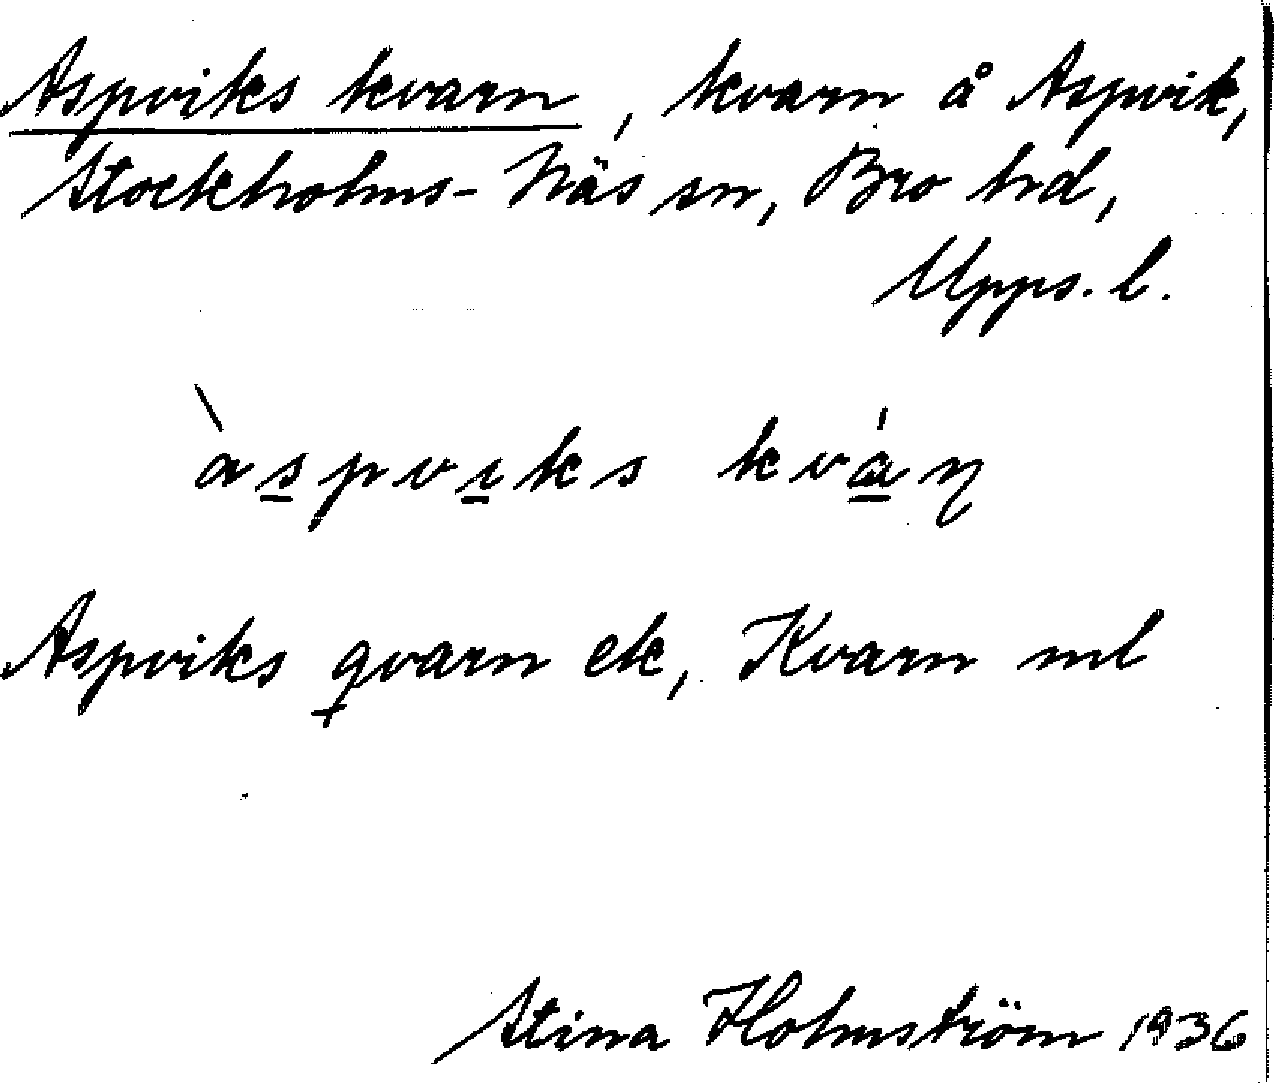 Aspviks kvarn, kvarn å Aspvik,
Stockholms-Näs sn, Bro hd,
Upps. l.
àspvıks kváɳ
Aspviks qvarn ek, Kvarn ml
Stina Holmström 1936